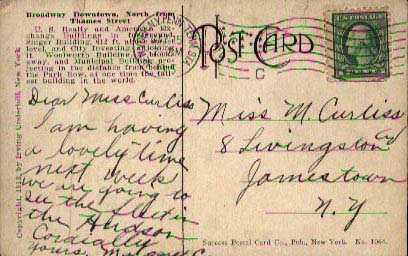 Broadway Downtown, North from
Thames Street
U. S. Realty and American
Buildings in foreground,
Singer Building, 612 ft. above
level, and City Investing adjoining.
Woolworth Building
away, and Municipal Building pro-
jecting in the distance from behind
the Park Row, at one time the tall-
est building in the world.
Copyright, 1912, by Irving Underhill, New York
POST CARD
U.S. POSTAGE
Dear Miss Curtiss
I am having
a lovely time
next week
we are going to
see the fleet in
the Hudson
Cordially
yours,
Miss M. Curtiss
8 Livingston
Jamestown
N. Y
Success Postal Card Co., Pub., New York. No. 1066.